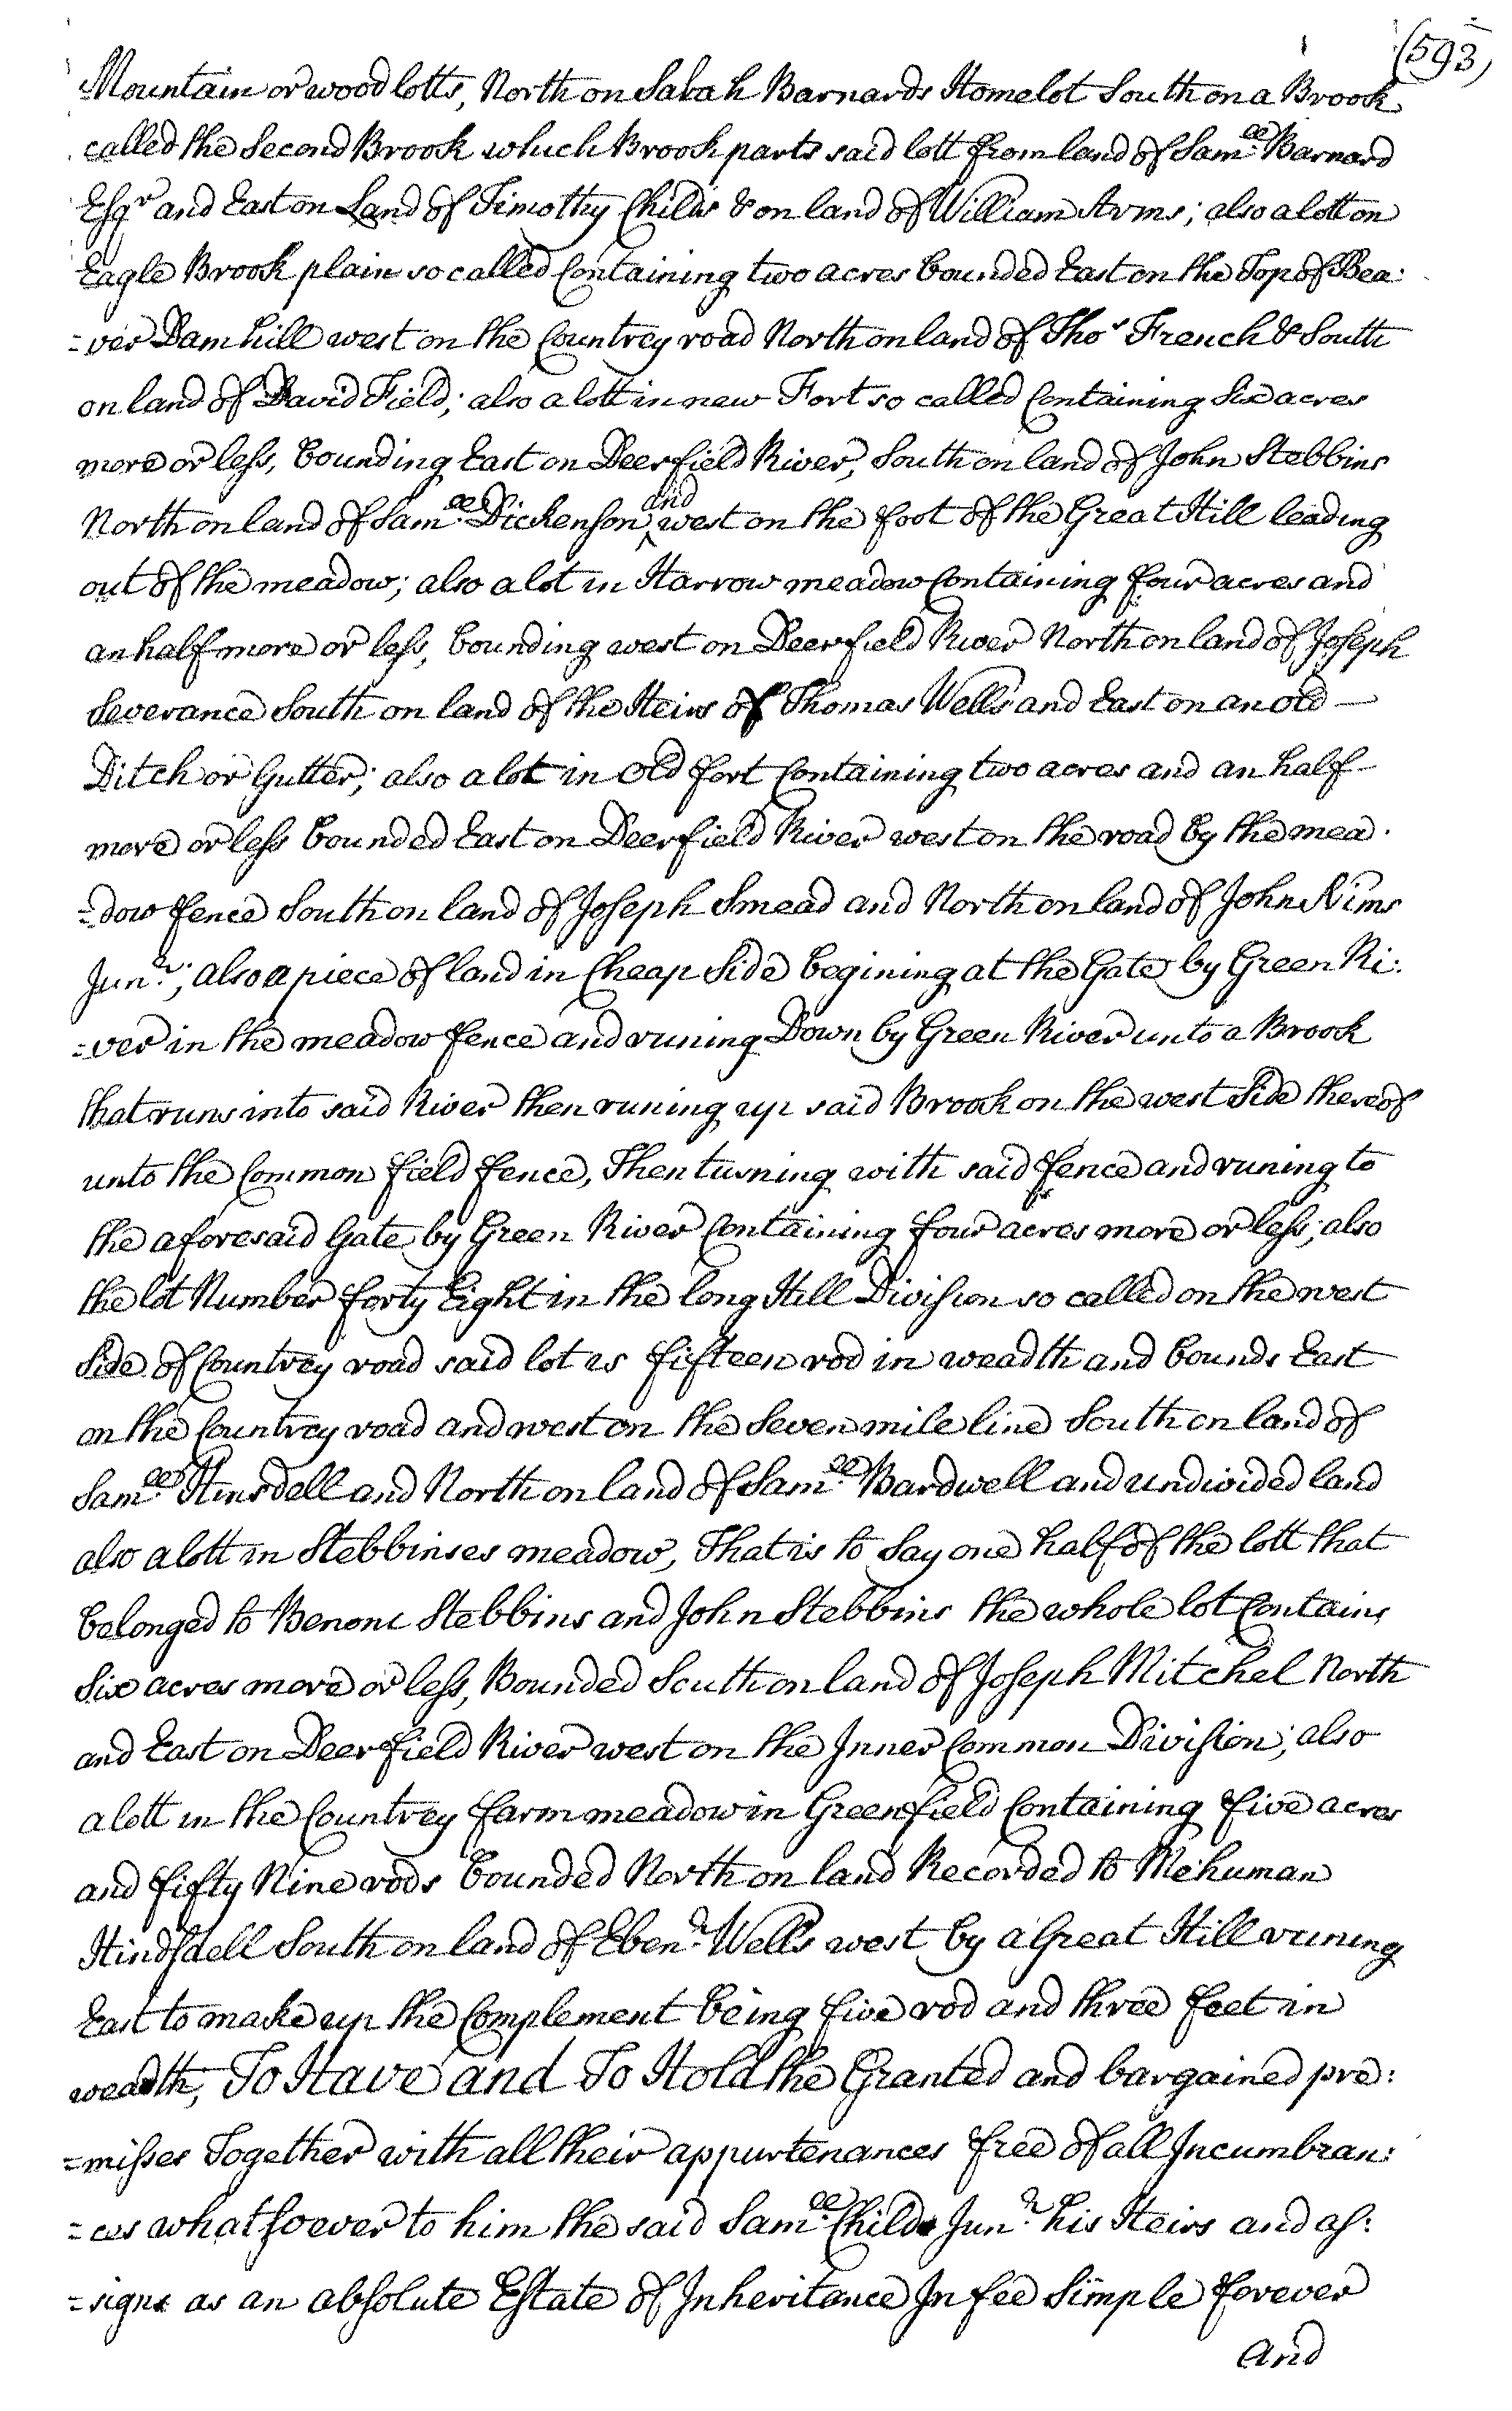 (593)
Mountain or wood lotts, North on Sarah Barnards Homelot South on a Brook
called the Second Brook which Brook parts said lott from land of Sam.ll Barnard
Esqr and East on Land of Timothy Childs & on land of William Arms; also a lott on
Eagle Brook plain so called Containing two acres bounded East on the Top of Bea:
=ver Dam hill west on the Countrey road North on land of Thos French & South
on land of David Field; also a lott in new Fort so called Containing Six acres
more or less, bounding East on Deerfield River, South on land of John Stebbins
North on land of Sam.ll Dickenson ^and west on the foot of the Great Hill leading
out of the meadow; also a lot in Harrow meadow Containing four acres and
an half more or less, bounding west on Deerfield River North on land of Joseph
Severance South on land of the Heirs of Thomas Wells and East on an old —
Ditch or Gutter; also a lot in old fort Containing two acres and an half
more or less bounded East on Deerfield River west on the road by the mea:
=dow fence South on land of Joseph Smead and North on land of John Nims
Jun.r; also a piece of land in Cheap Side begining at the Gate by Green Ri:
=ver in the meadow fence and runing Down by Green River unto a Brook
that runs into said River then runing up said Brook on the west Side thereof
unto the Common field fence, Then turning with said fence and runing to
the aforesaid Gate by Green River Containing four acres more or less; also
the lot Number forty Eight in the long Hill Division so called on the west
Side of Countrey road said lot is fifteen rod in weadth and bounds East
on the Countrey road and west on the Seven mile line South on land of
Sam.ll Hinsdell and North on land of Sam.ll Bardwell and undivided land
also a lott in Stebbinses meadow, That is to Say one half of the lott that
belonged to Benoni Stebbins and John Stebbins the whole lot Contains
Six acres more or less, Bounded South on land of Joseph Mitchel North
and East on Deerfield River west on the Inner Common Division; also
a lott in the Countrey farm meadow in Greenfield Containing five acres
and fifty Nine rods bounded North on land Recorded to Mehuman
Hindsdell South on land of Eben.r Wells west by a Great Hill runing
East to make up the Complement being five rod and three feet in
weadth, To Have and To Hold the Granted and bargained pre:
=misses Together with all their appurtenances free of all Incumbran:
=ces whatsoever to him the said Sam.ll Childs Jun.r his Heirs and as:
=signs as an absolute Estate of Inheritance In fee Simple forever
And